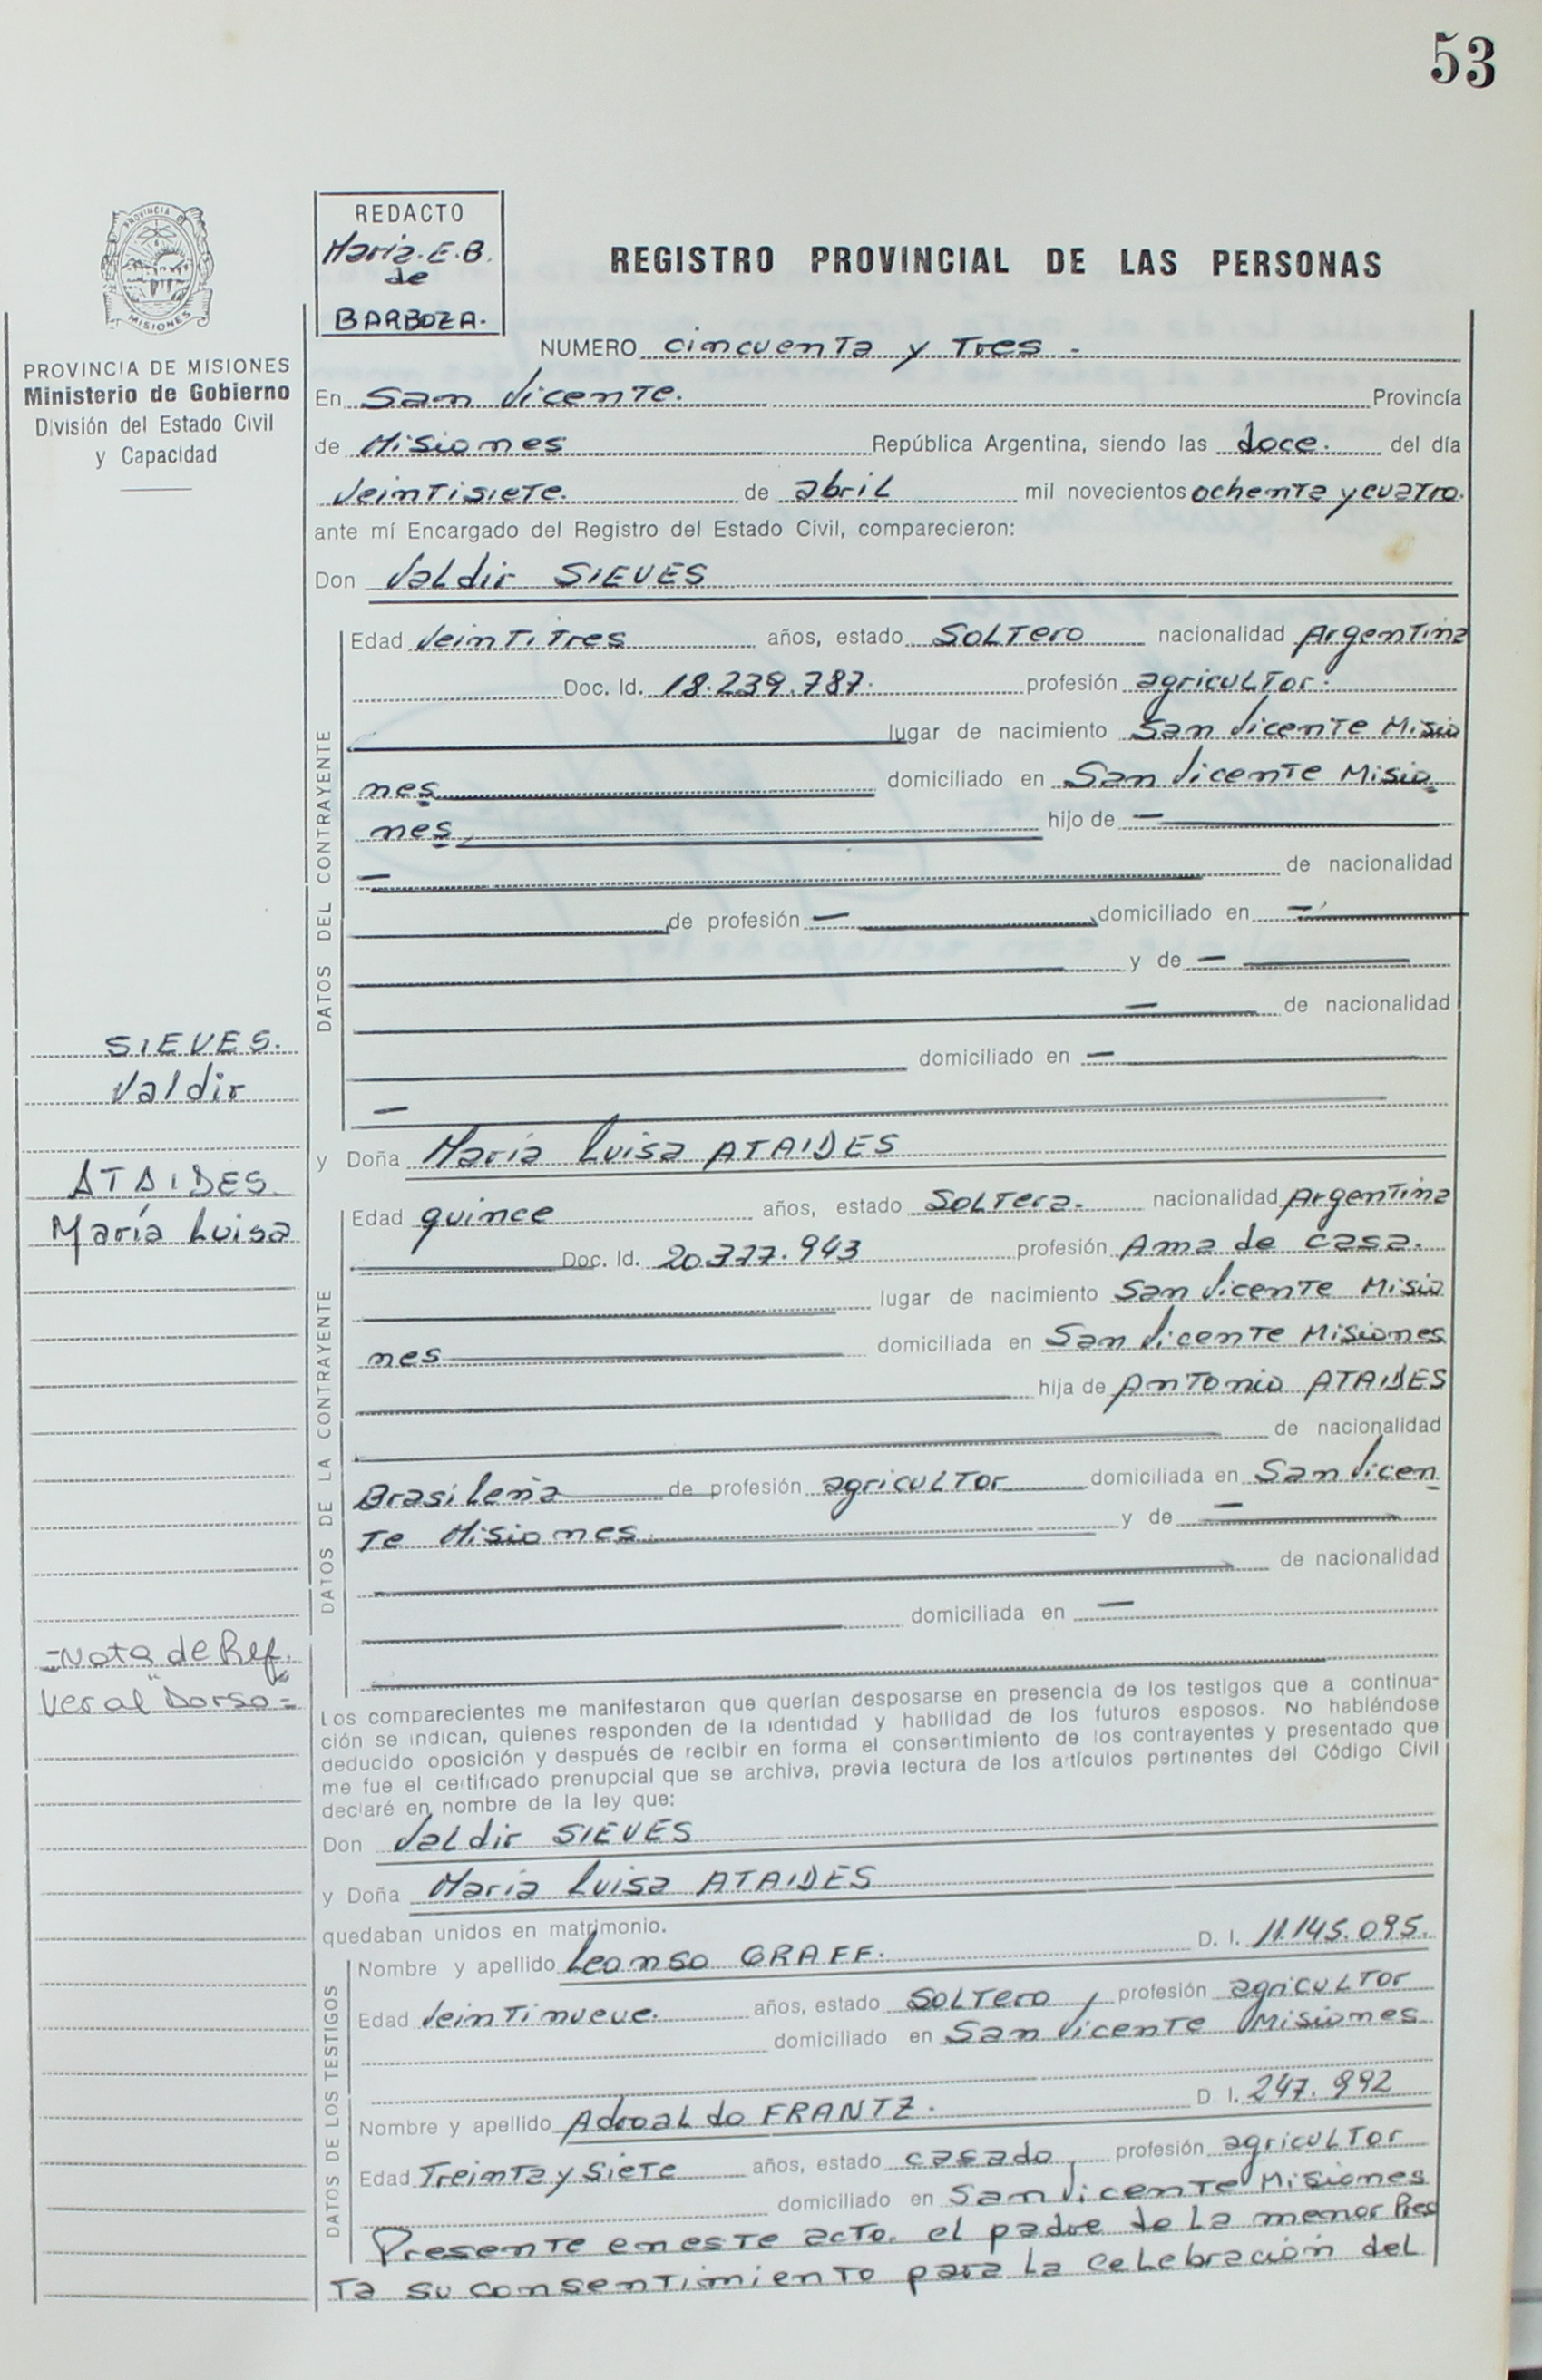 53
PROVINCIA DE
MISIONES
PROVINCIA DE MISIONES
Ministerio de Gobierno
División del Estado Civil
y Capacidad
REDACTO
Maria. E. B.
de
BARBOZA.
REGISTRO PROVINCIAL DE LAS PERSONAS
NUMERO cincuenta y Tres -
En San Vicente. Provincia
de Misiones República Argentina, siendo las doce. del día
Veintisiete. de abril mil novecientos ochenta y cuatro.
ante mí Encargado del Registro del Estado Civil, comparecieron:
Don Valdir SIEVES
DATOS DEL CONTRAYENTE
Edad Veintitres años, estado Soltero nacionalidad Argentina
Doc. Id. 18.239.787. profesión agricultor.
lugar de nacimiento San Vicente Misio
nes domiciliado en San Vicente Misio
nes hijo de —
— de nacionalidad
de profesión — domiciliado en —
y de —
— de nacionalidad
domiciliado en —
—
SIEVES.
Valdir
ATAIDES
María Luisa
y Doña María Luisa ATAIDES
DATOS DE LA CONTRAYENTE
Edad quince años, estado Soltera. nacionalidad Argentina
Doc. Id. 20.777.943 profesión Ama de casa.
lugar de nacimiento San Vicente Misio
nes domiciliada en San Vicente Misiones
hija de Antonio ATAIDES
de nacionalidad
Brasileña de profesión agricultor domiciliada en San Vicen
te Misiones. y de —
de nacionalidad
domiciliada en —
=Nota de Ref.
Ver al "Dorso"=
Los comparecientes me manifestaron que querían desposarse en presencia de los testigos que a continua-
ción se indican, quienes responden de la identidad y habilidad de los futuros esposos. No habiéndose
deducido oposición y después de recibir en forma el consentimiento de los contrayentes y presentado que
me fue el certificado prenupcial que se archiva, previa lectura de los artículos pertinentes del Código Civil
declaré en nombre de la ley que:
Don Valdir SIEVES
y Doña María Luisa ATAIDES
quedaban unidos en matrimonio.
DATOS DE LOS TESTIGOS
Nombre y apellido Leonso GRAFF. D. I. 11.145.095.
Edad Veintinueve. años, estado Soltero, profesión agricultor
domiciliado en San Vicente Misiones
Nombre y apellido Adroaldo FRANTZ. D I. 247.992
Edad Treinta y Siete años, estado casado, profesión agricultor
domiciliado en San Vicente Misiones
Presente en este acto. el padre de la menor Pres
ta su consentimiento para la celebración del